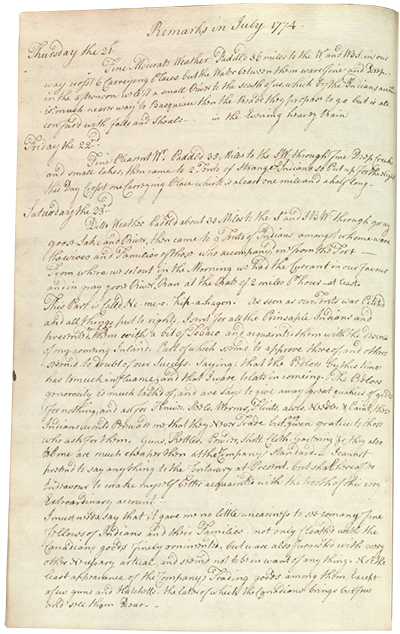 Remarks in July 1774
Thursday the 21st
Fine Weather Paddled 36 miles to the W and WBS in our
way crost 6 Carrying Places but the Water between them ware fine and Deep
in the afternoon we left a small River to the south of us, which by the Indians
is much nearer way to Basquiau then the
confused with falls and Shoals — in the Evening heavy Rain
Friday the 22d
Fine Pleasant Wr Paddled 35 Miles to the SW through fine Deep
and small Lakes, then came to 2 Tents of Strange Indians so Put up for the Night
this Day Crost one Carrying Place which is a least one mile and a half long
Saturday the 23d
Ditto Weather Padled about 38 Miles to the S and SBW through
good Lakes and River, then came to 9 Tents of Indians amongst whome were
the wives and Families of those who accompanyed me from the Fort —
From where we set out in the Morning we had the Currant in our favour
and in many good River, Ran at the Rate of 2 miles Pr hour at least
This Part is called
As soon as our Tents war Pitched
and all things put to rights, I sent for all the Prinsaple Indians and
presented them with a bit of Tobaco and acquainted them with the
of my coming Inland. Part of which seemd to approve thereof and others
seemed to doubt of our Success. Saying that the Pedlors by this time
has to much influance, and that I ware to late in comeing. The Pedlors
generosity is much talked of, and are says to give away great quantes of goods
for nothing, and as for Knives, Steels, Worms, Flints, awls, Needles & Paint these
Indians would Perswade me that they never Trade but given gratice to those
who ask for them. Guns, Kettles, Powder, Shott, Cloth, Gartring &c they also
tell me are much cheaper then at the Companys Standard. I cannot
pretend to say any thing to the Contrary at Present, but shall hereafter
Endeavour to make myself better acquainted with the trooth of this very
Extraordinary account.
I must needs say that it gave me no little uneasiness to see so many fine
fellows of Indians and their Families not only Cloathed with the
Canadians goods finely ornimented, but ware also furnish'd with every
other Necessary artical, and seems not to be in want of any thing. Not the
least appearance of the Companys Trading goods among them, Except
a few guns and Hatchetts the latter of which the Canadians brings but few
and sell them Dear —